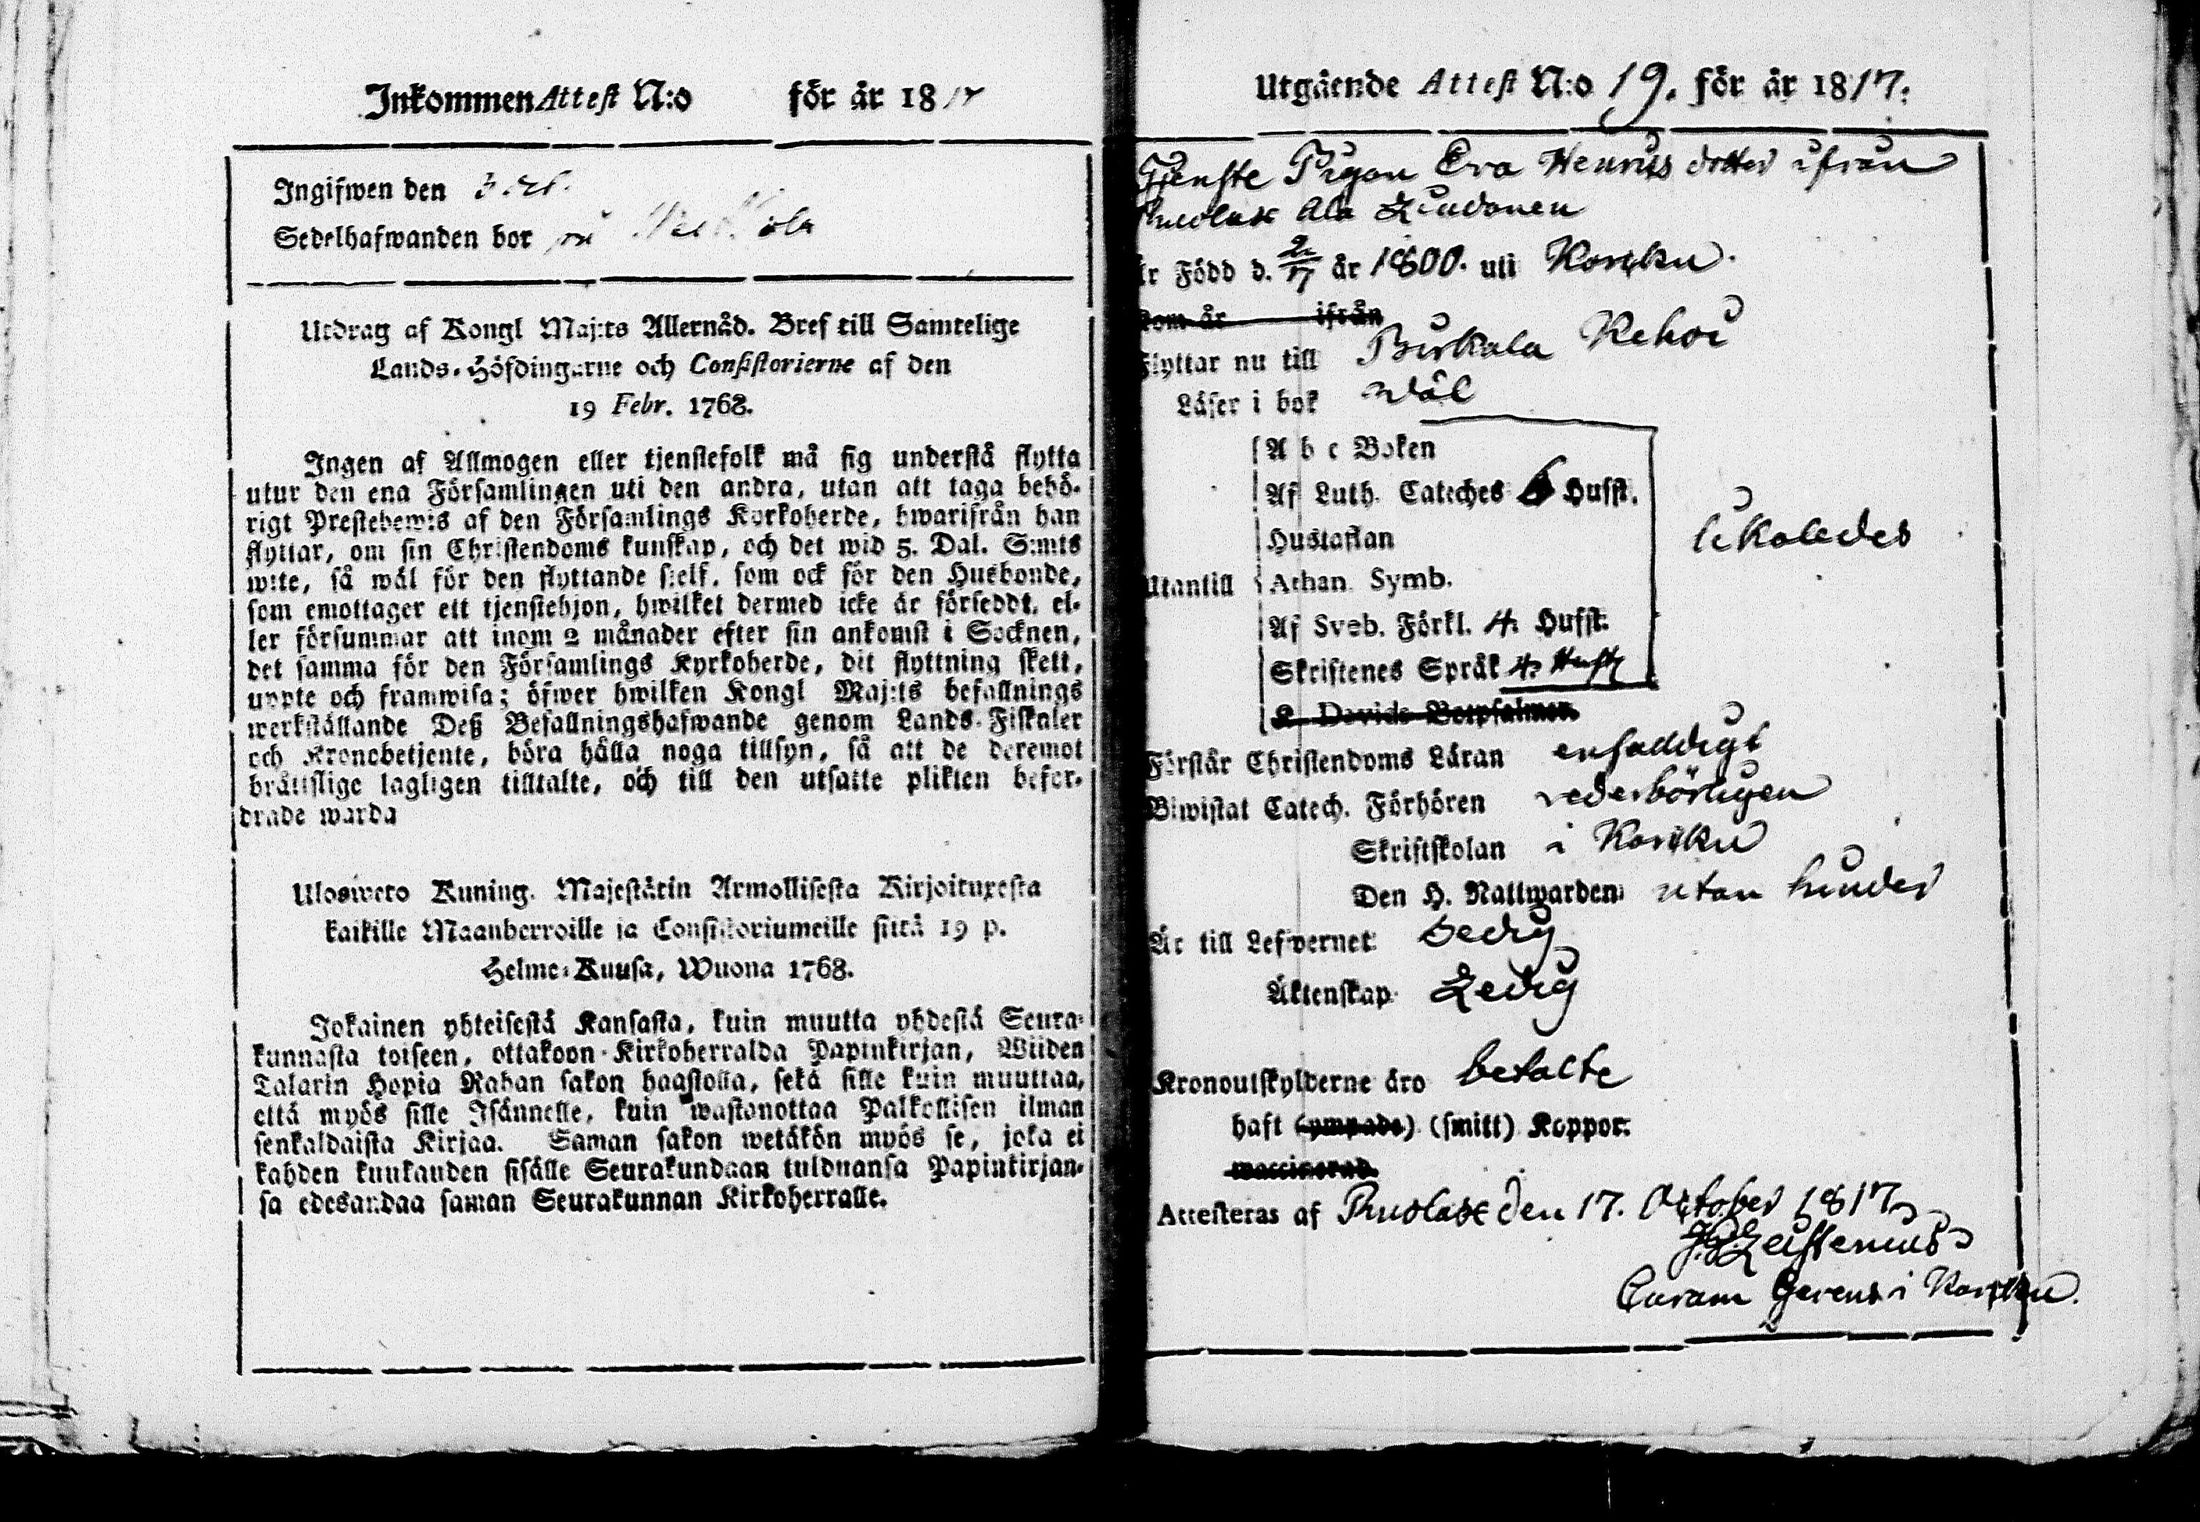 Inkommen Attest N:o för år 1817
Ingifwen den
Sedelhafwanden bor på
Utdrag af Kongl Maj:ts Allernåd. Bref till Samtelige
Lands-Höfdingarne och Consistorierne af den
19 Febr. 1768.
Ingen af Allmogen eller tjenstefolk må sig understå flytta
utur den ena Församlingen uti den andra, utan att taga behö-
rigt Prestebewis af den Församlings Kyrkoherde, hwarifrån han
flyttar, om sin Christendoms kunskap, och det wid 5. Dal. S:mts
wite, så wäl för den flyttande sjelf, som ock för den Husbonde,
som emottager ett tjenstehjon, hwilket dermed icke är försedt, el-
ler försummar att inom 2 månader efter sin ankomst i Socknen,
det samma för den Församlings Kyrkoherde, dit flyttning skett,
uppte och framwisa; öfwer hwilken Kongl Maj:ts befallnings
werkställande Deß Befallningshafwande genom Lands-Fiskaler
och Kronobetjente, böra hålla noga tillsyn, så att de deremot
bråttslige lagligen tilltalte, och till den utsatte plikten befor-
drade warda
Uloswето Kuning. Majestätin Armollisesta Kirjoituxesta
kaikille Maanherroille ja Consistoriumeille siitä 19 p.
Helme-Kuusa, Wuona 1768.
Jokainen yhteisestä Kansasta, kuin muutta yhdestä Seura-
kunnasta toiseen, ottakoon Kirkoherralda Papinkirjan, Wiiden
Talarin Hopia Rahan sakon haastolla, sekä sille kuin muuttaa,
että myös sille Isännelle, kuin wastanottaa Palkollisen ilman
senkaldaista Kirjaa. Saman sakon wetäkön myös se, joka ei
kahden kuukauden sisälle Seurakundaan tulduansa Papinkirjan-
sa edesandaa saman Seurakunnan Kirkoherralle.
Utgående Attest N:o 19. för år 1817.
Tjenste Pigan Eva Henrics dotter ifrån
Ruolax Ala Liudonen
är Född d. 2/7 år 1800. uti Korpiku.
kom år ifrån
Flyttar nu till Birkala Kehoi
Läser i bok wäl
A b c Boken
Af Luth. Cateches 6 Hufst.
Hustaflan
likaledes
Utantill Athan. Symb.
Af Sveb. Förkl. 4. Hufst.
Skriftenes Språk 4. Hufst
K. Davids Botpsalmer.
Förstår Christendoms Läran enfaldigt
Biwistat Catech. Förhören vederbörligen
Skriftskolan i
Den H. Nattwarden utan hinder
Är till Lefwernet Sedig
Äktenskap Ledig
Kronoutskylderne äro betalte
haft (ympade) (smitt) Koppor.
waccinerad.
Attesteras af Ruolax den 17. October 1817
Curam Gerens i